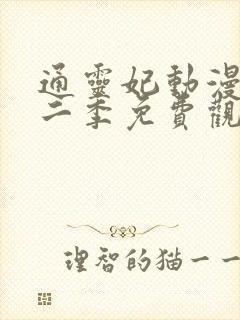 通靈妃動漫
二季免費觀
理智的猫一一